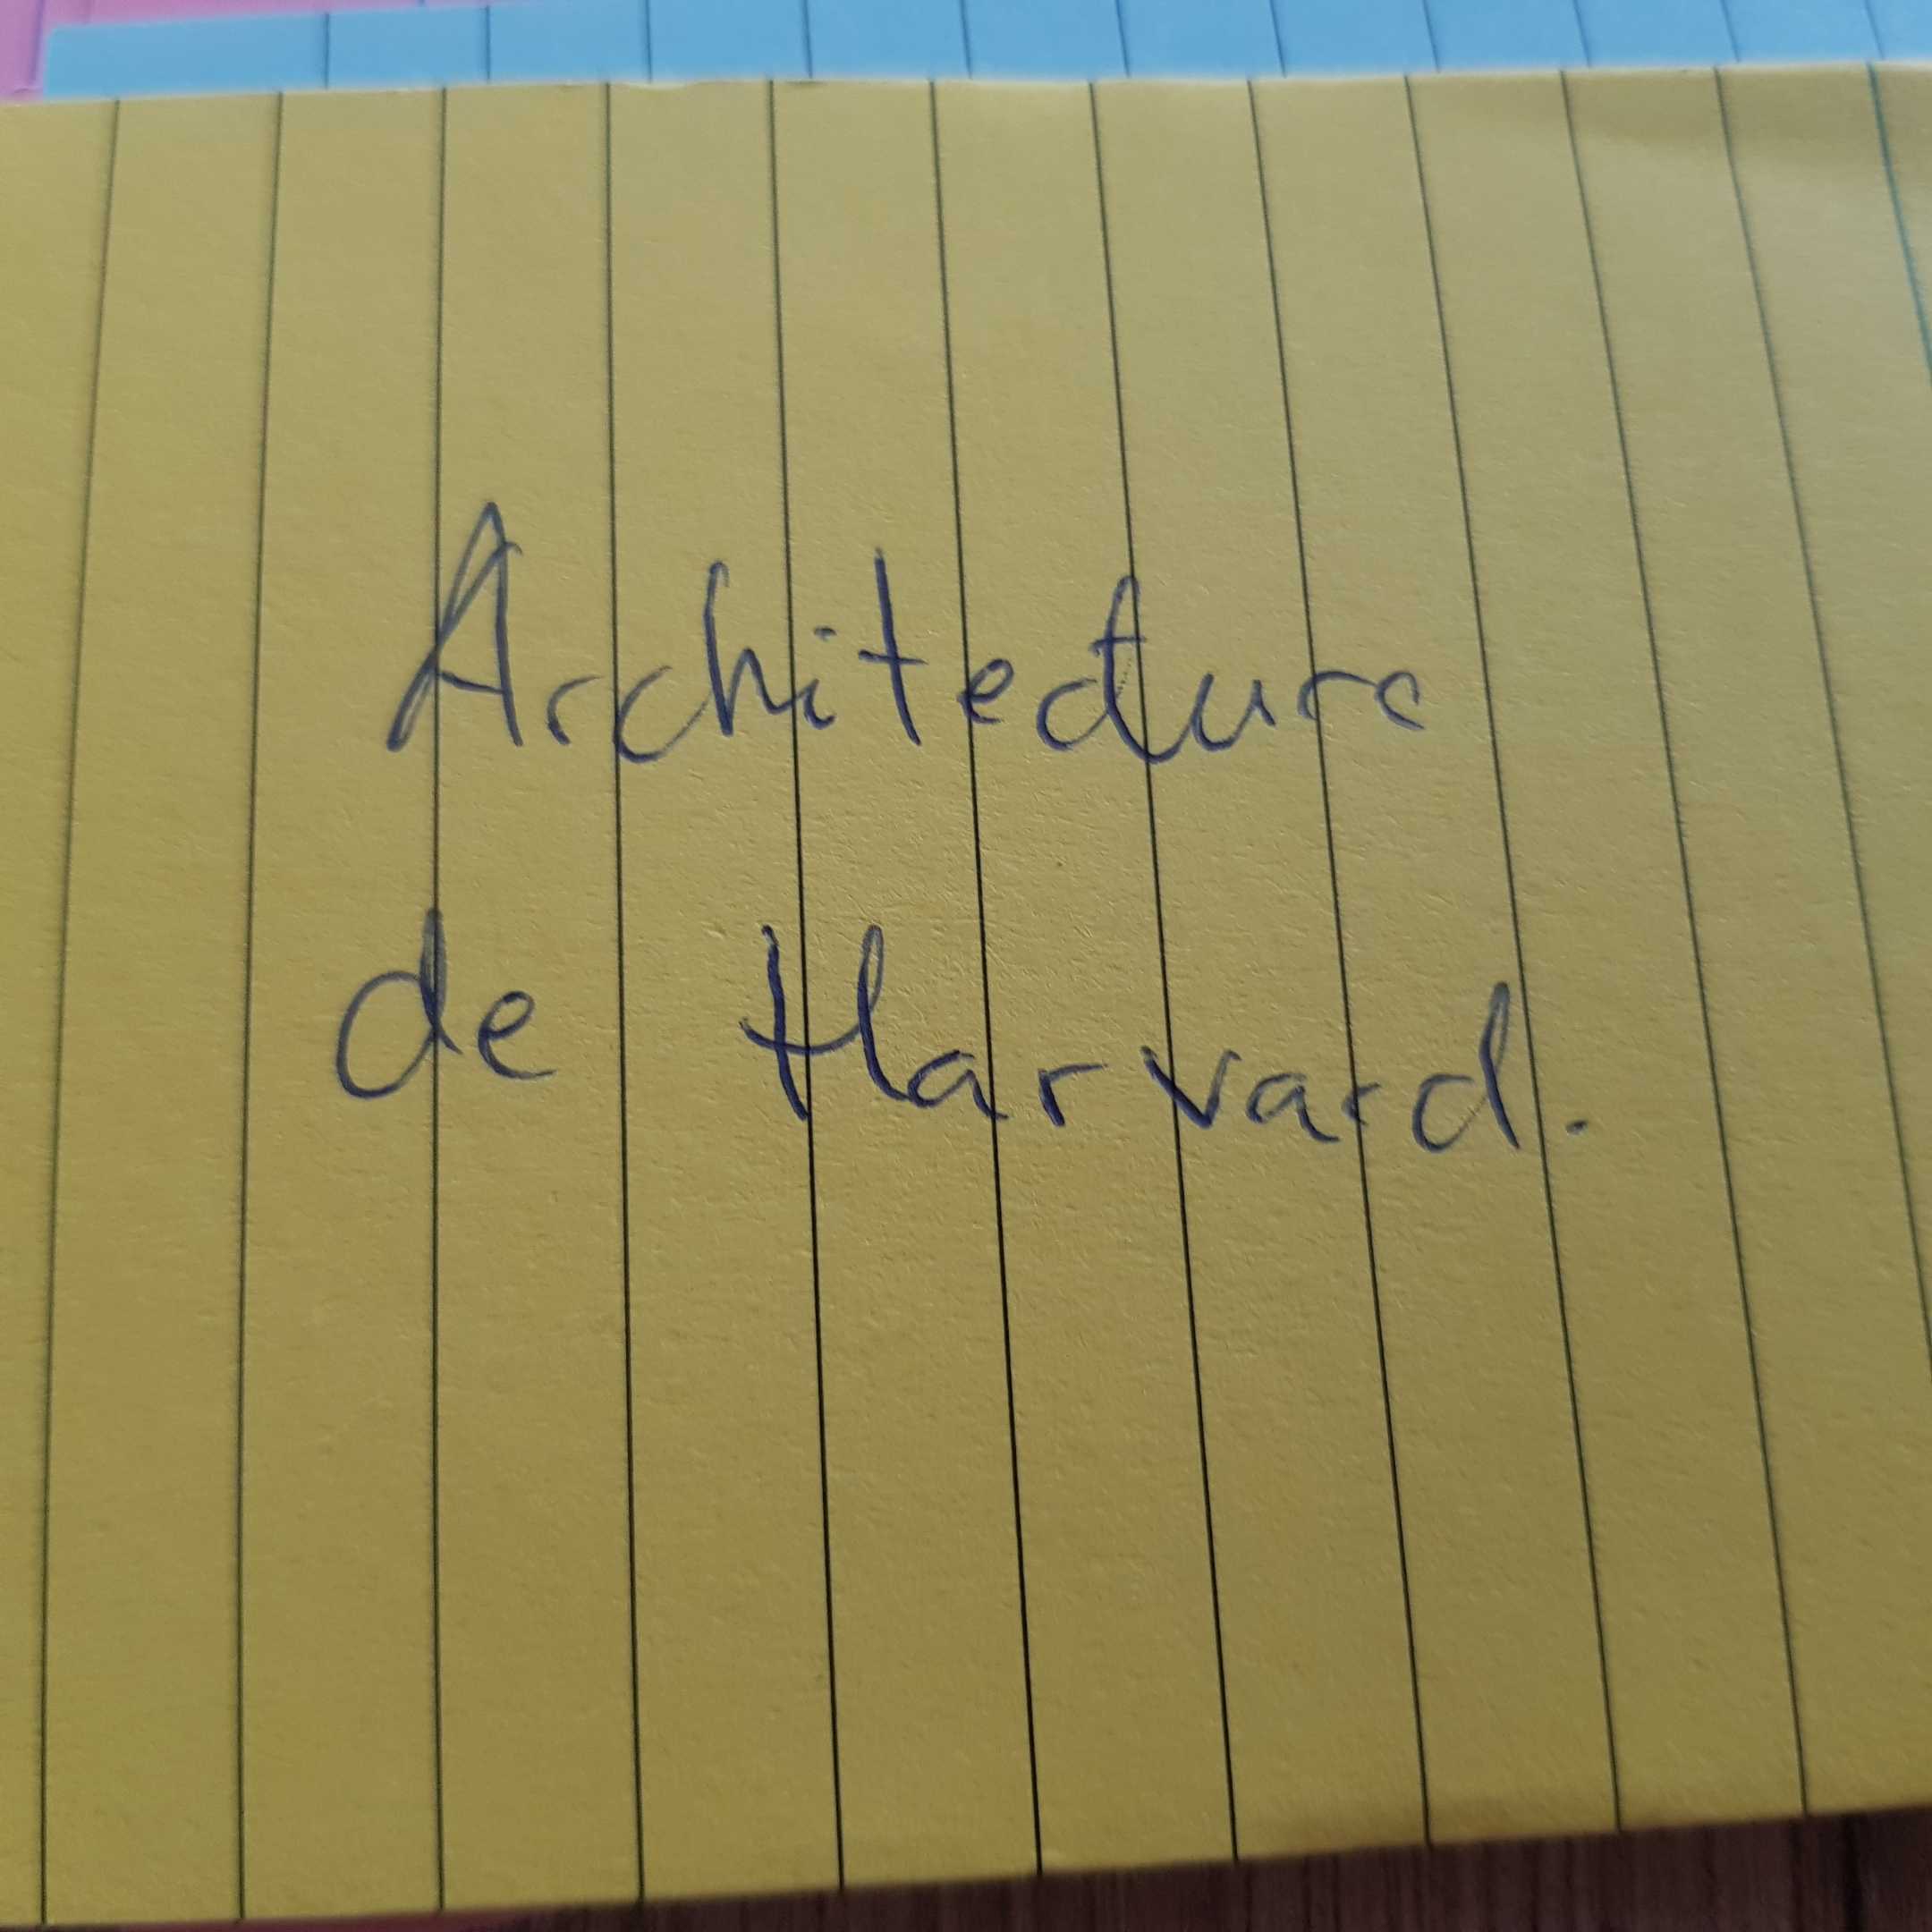 Architecture
de Harvard.